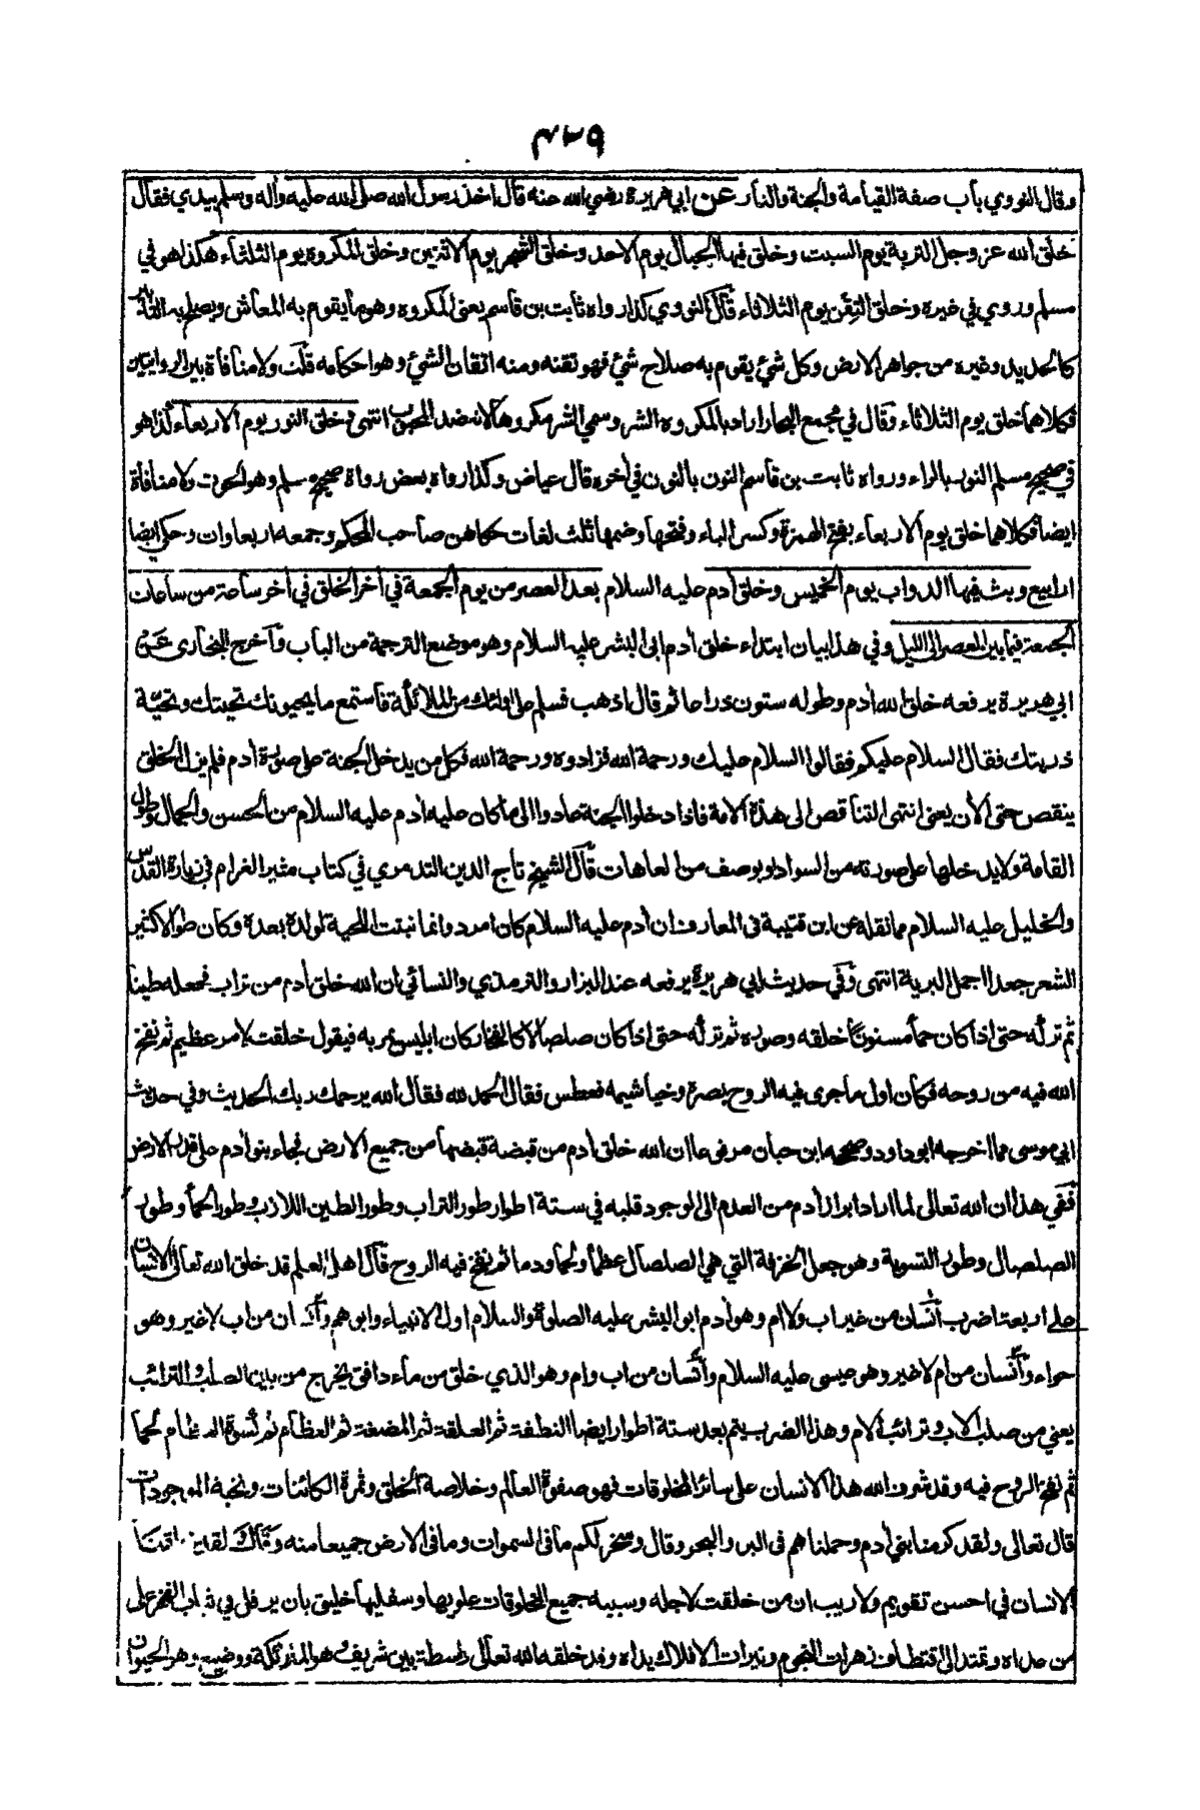 ٤٢٩
وقال النووي باب صفة القيامة والجنة والنار عن ابي هريرة رضي الله عنه قال اخذ رسول الله صلى الله عليه وآله وسلم بيدي فقال
خلق الله عز وجل التربة يوم السبت وخلق فيها الجبال يوم الاحد وخلق الشجر يوم الاثنين وخلق المكروه يوم الثلثاء هكذا هو في
مسلم وروي في غيره وخلق التقن يوم الثلاثاء قال النووي كذا رواه ثابت بن قاسم يعني المكروه وهو ما يقوم به المعاش ويصلح به التدابير
كالحديد وغيره من جواهر الارض وكل شئ يقوم به صلاح شئ فهو تقنه ومنه اتقان الشئ وهو احكامه قلت ولا منافاة بين الروايتين
فكلاهما خلق يوم الثلاثاء وقال في مجمع البحار اراد بالمكروه الشر وسمي الشر مكروها لانه ضد المحبوب انتهى وخلق النور يوم الاربعاء كذا هو
في صحيح مسلم النور بالراء ورواه ثابت بن قاسم النون بالنون في اخره قال عياض وكذا رواه بعض رواة صحيح مسلم وهو الحوت ولا منافاة
ايضا فكلاهما خلق يوم الاربعاء بفتح الهمزة وكسر الباء وفتحها وضمها ثلث لغات حكاهن صاحب المحكم وجمعه اربعاوات وحكي ايضا
ارابيع وبث فيها الدواب يوم الخميس وخلق ادم عليه السلام بعد العصر من يوم الجمعة في اخر الخلق في اخر ساعة من ساعات
الجمعة فيما بين العصر الى الليل وفي هذا بيان ابتداء خلق ادم ابي البشر عليه السلام وهو موضع الترجمة من الباب وأخرج البخاري عن
ابي هريرة يرفعه خلق الله ادم وطوله ستون ذراعا ثم قال اذهب فسلم على اولئك من الملائكة فاستمع ما يحيونك تحيتك وتحية
ذريتك فقال السلام عليكم فقالوا السلام عليك ورحمة الله فزادوه ورحمة الله فكل من يدخل الجنة على صورة ادم فلم يزل الخلق
ينقص حتى الأن يعني انتهى التناقص الى هذه الامة فاذا دخلوا الجنة عادوا الى ما كان عليه ادم عليه السلام من الحسن والجمال وطول
القامة ولا يدخلها على صورته من السواد او بوصف من العاهات قال الشيخ تاج الدين التدمري في كتاب مثير الغرام في زيارة القدس
والخليل عليه السلام مما نقله عن ابن قتيبة في المعارف ان ادم عليه السلام كان امرد وانما نبتت اللحية لولده بعده وكان طوالا كثير
الشعر جعدا اجمل البرية انتهى وفي حديث ابي هريرة يرفعه عند البزار والترمذي والنسائي ان الله خلق ادم من تراب فجعله طينا
ثم تركه حتى اذا كان حمأ مسنونا خلقه وصوره ثم تركه حتى اذا كان صلصالا كالفخار كان ابليس يمر به فيقول خلقت لامر عظيم ثم نفخ
الله فيه من روحه فكان اول ما جرى فيه الروح بصره وخياشيمه فعطس فقال الحمد لله فقال الله يرحمك ربك الحديث وفي حديث
ابي موسى مما اخرجه ابو داود وصححه ابن حبان مرفوعا ان الله خلق ادم من قبضة قبضها من جميع الارض فجاء بنو ادم على قدر الارض
ففي هذا ان الله تعالى لما اراد ابراز أدم من العدم الى الوجود قلبه في ستة اطوار طور التراب وطور الطين اللازب وطور الحمأ وطور
الصلصال وطور التسوية وهو جعل الخزفة التي هي الصلصال عظما ولحما ودما ثم نفخ فيه الروح قال اهل العلم قد خلق الله تعالى الانسان
على اربعة اضرب انسان من غير اب ولا ام وهو أدم ابو البشر عليه الصلوة والسلام اول الانبياء وابوهم وانسان من اب لا غير وهو
حواء وانسان من ام لا غير وهو عيسى عليه السلام وانسان من اب وام وهو الذي خلق من ماء دافق يخرج من بين الصلب والترائب
يعني من صلب الاب وترائب الام وهذا الضرب يتم بعد ستة اطوار ايضا النطفة ثم العلقة ثم المضغة ثم العظام ثم كسوة العظام لحما
ثم نفخ الروح فيه وقد شرف الله هذا الانسان على سائر المخلوقات فهو صفوة العالم وخلاصة الخلق وثمرة الكائنات ونخبة الموجودات
قال تعالى ولقد كرمنا بني أدم وحملناهم في البر والبحر وقال وسخر لكم ما في السموات وما في الارض جميعا منه وقال لقد خلقنا
الانسان في احسن تقويم ولا ريب ان من خلقت لاجله وسببه جميع المخلوقات علويها وسفليها خليق بان يرفل في ثياب الفخر على
من عداه وتمتد الى اقتطاف زهرات النجوم ونيرات الافلاك يداه وقد خلقه الله تعالى واسطة بين شريف وهو الملائكة ووضيع وهو الحيوان